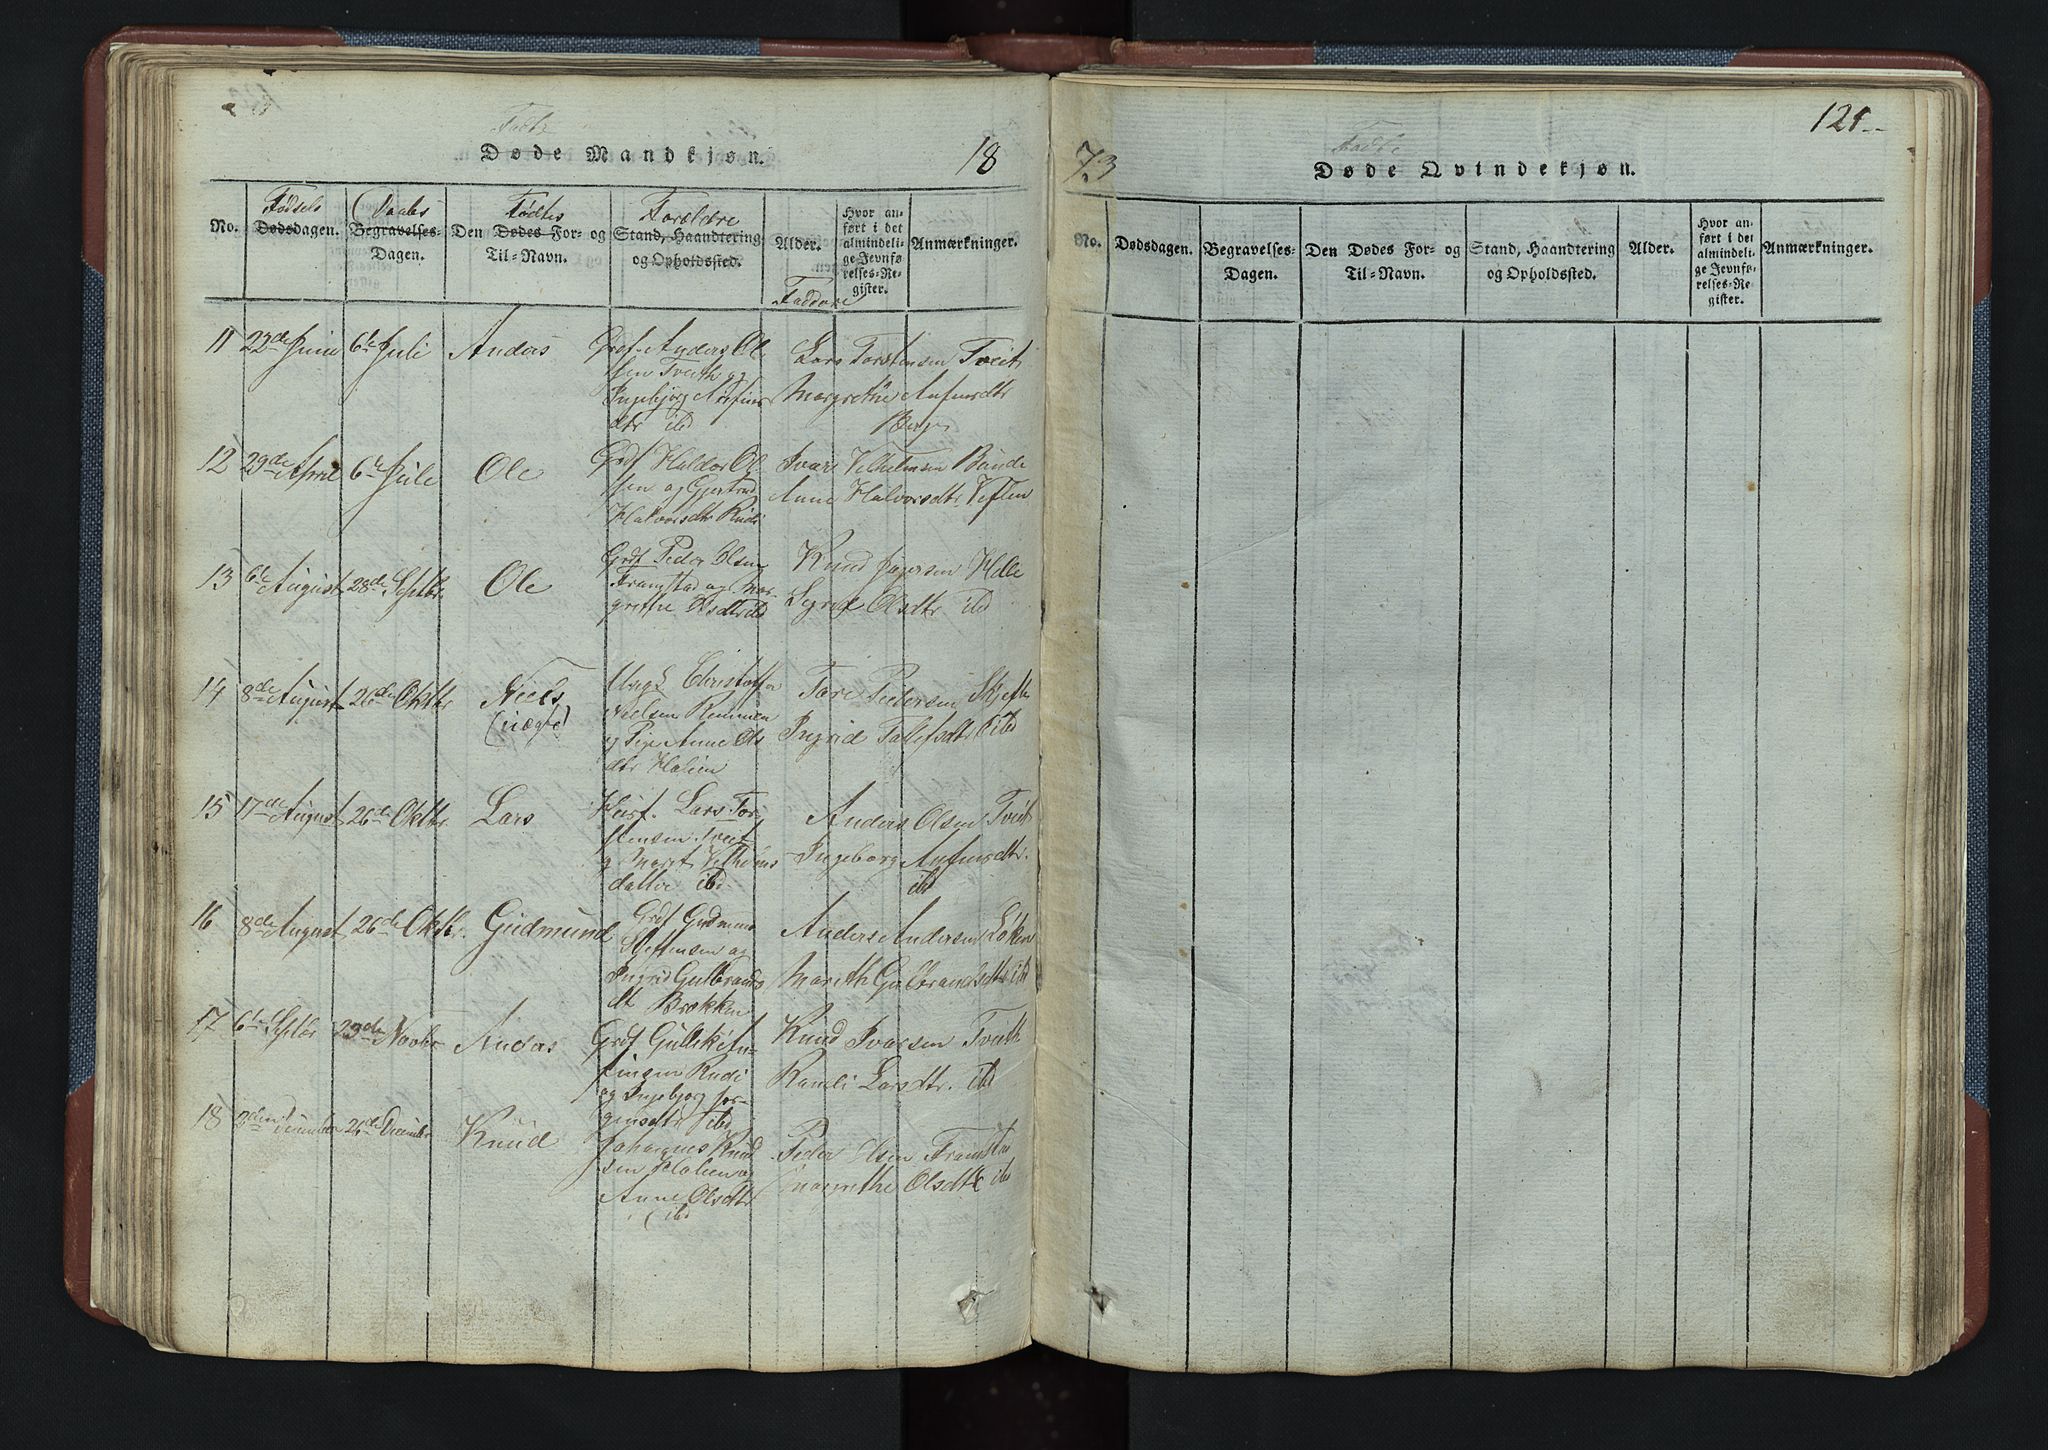 Fødte
Døde Mandkjøn.
18
No.
Fødsels
Dødsdagen.
Daabs
Begravelses-
Dagen.
Fødtes
Den Dødes For- og
Til-Navn.
Forældre
Stand, Haandtering
og Opholdssted.
Alder.
Faddere
Hvor an-
ført i det
almindeli-
ge Jevnfø-
relses-Re-
gister.
Anmærkninger.
11 22de Juni 6te Juli Anders
Grdf. Anders Ol
sen Tveith og
Ingebjørg Arfins
dtr ibd
Lars Torstensen Tveit
Margrethe Anfinsdtr
Berge
12 29de April 6te Juli Ole
Grdf Haldor Ol
sen og Gjertrud
Halvorsdtr Rudi
Ivar Vilhelmsen Bunde
Anne Halvorsdtr
13 6te August 28de Septbr. Ole
Grdf Peder Olsen
Framstad og Mar
grethe Olsdtr ibd
Knud
Sigrid Olsdtr ibd
14 8de August 26de Oktbr. Niels
(uægte)
Ungk Christoffer
Nielsen Remmen
og Pige Anne Ols
dtr Holien
Tore Pedersen
Ingrid ibd
15 17de August 26de Oktbr. Lars
Huusf. Lars Tor
stensen Tveit
og Marit Vilhelms
datter ibd
Anders Olsen Tveit
Ingeborg Anfinsdtr.
ibd
16 8de August 26de Oktbr. Gudmund
Grdf Gudmund
Steffensen og
Ingrid Gulbrands
dt Brækken
Anders Andersen Løken
Marith Gulbrandsdtr ibd
17 6te Septbr 23de Novbr Anders
Grdf Gullik An-
finsen Rudi
og Ingebjørg Jør-
gensdtr ibd
Knud Ivarsen Tveith
Randi Larsdtr. ibd
18 2den December 26de December Knud
Johannes Knud
sen Holien og
Anne Olsdtr
ibd
Peder Olsen Framsta
Margrethe Olsdtr ibd
73
121
Fødte
Døde Qvindekjøn.
No.
Dødsdagen.
Begravelses-
Dagen.
Den Dødes For- og
Til-Navn.
Stand, Haandtering
og Opholdssted.
Alder.
Hvor an-
ført i det
almindeli-
ge Jevnfø-
relses-Re-
gister.
Anmærkninger.